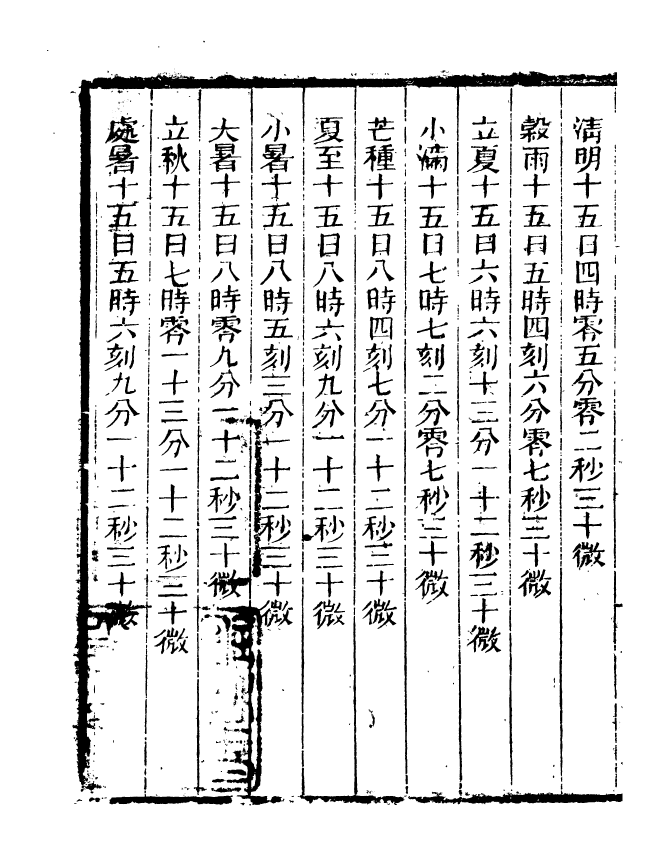 清明十五日四時零五分零二秒三十微
穀雨十五日五時四刻六分零七秒三十微
立夏十五日六時六刻十三分一十二秒三十微
小滿十五日七時七刻二分零七秒三十微
芒種十五日八時四刻七分一十二秒三十微
夏至十五日八時六刻九分一十二秒三十微
小暑十五日八時五刻三分一十二秒三十微
大暑十五日八時零九分一十二秒三十微
立秋十五日七時零一十三分一十二秒三十微
處暑十五日五時六刻九分一十二秒三十微